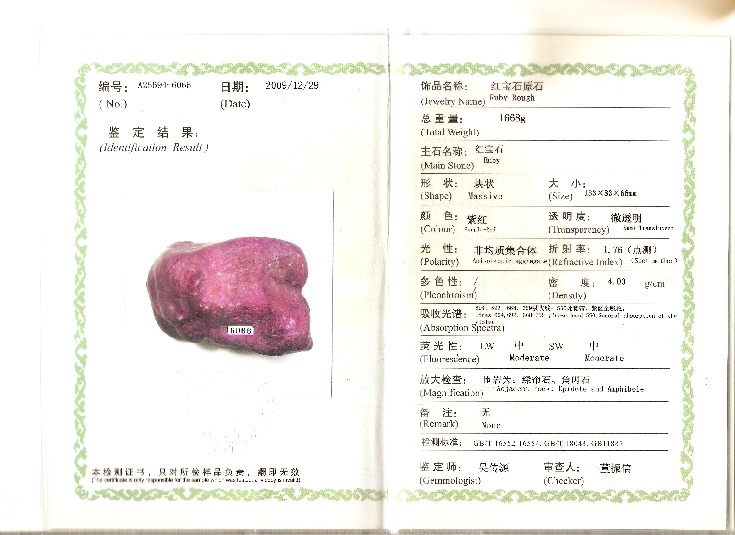 编号: A25694-6066 日期: 2009/12/29
(No.) (Date)
鉴 定 结 果:
(Identification Result)
6066
本检测证书，只对所检样品负责，翻印无效
(The certificate is only responsible for the sample which was tested, any copy is invalid)
饰品名称: 红宝石原石
(Jewelry Name) Ruby Rough
总 重 量: 1668g
(Total Weight)
主石名称: 红宝石
(Main Stone) Ruby
形 状: 块状 大 小:
(Shape) Massive (Size) 133×83×66mm
颜 色: 紫红 透 明 度: 微透明
(Colour) Purple-Red (Transparency) Semi Translucent
光 性: 非均质集合体 折 射 率: 1.76 (点测)
(Polarity) Anisotropic aggregate (Refractive Index) (Spot method)
多 色 性: / 密 度: 4.00 g/cm
(Pleochroism) (Density)
吸收光谱:
(Absorption Spectra)
荧 光 性: LW 中 SW 中
(Fluorescence) Moderate Moderate
放大检查: 围岩为: 绿帘石、角闪石
(Magnification) Adjacent rock: Epidote and Amphibole
备 注: 无
(Remark) None
检测标准: GB/T 16552-16554, GB/T 18043, GB11887
鉴 定 师: 吴传源 审查人: 振信
(Gemmologist) (Checker)